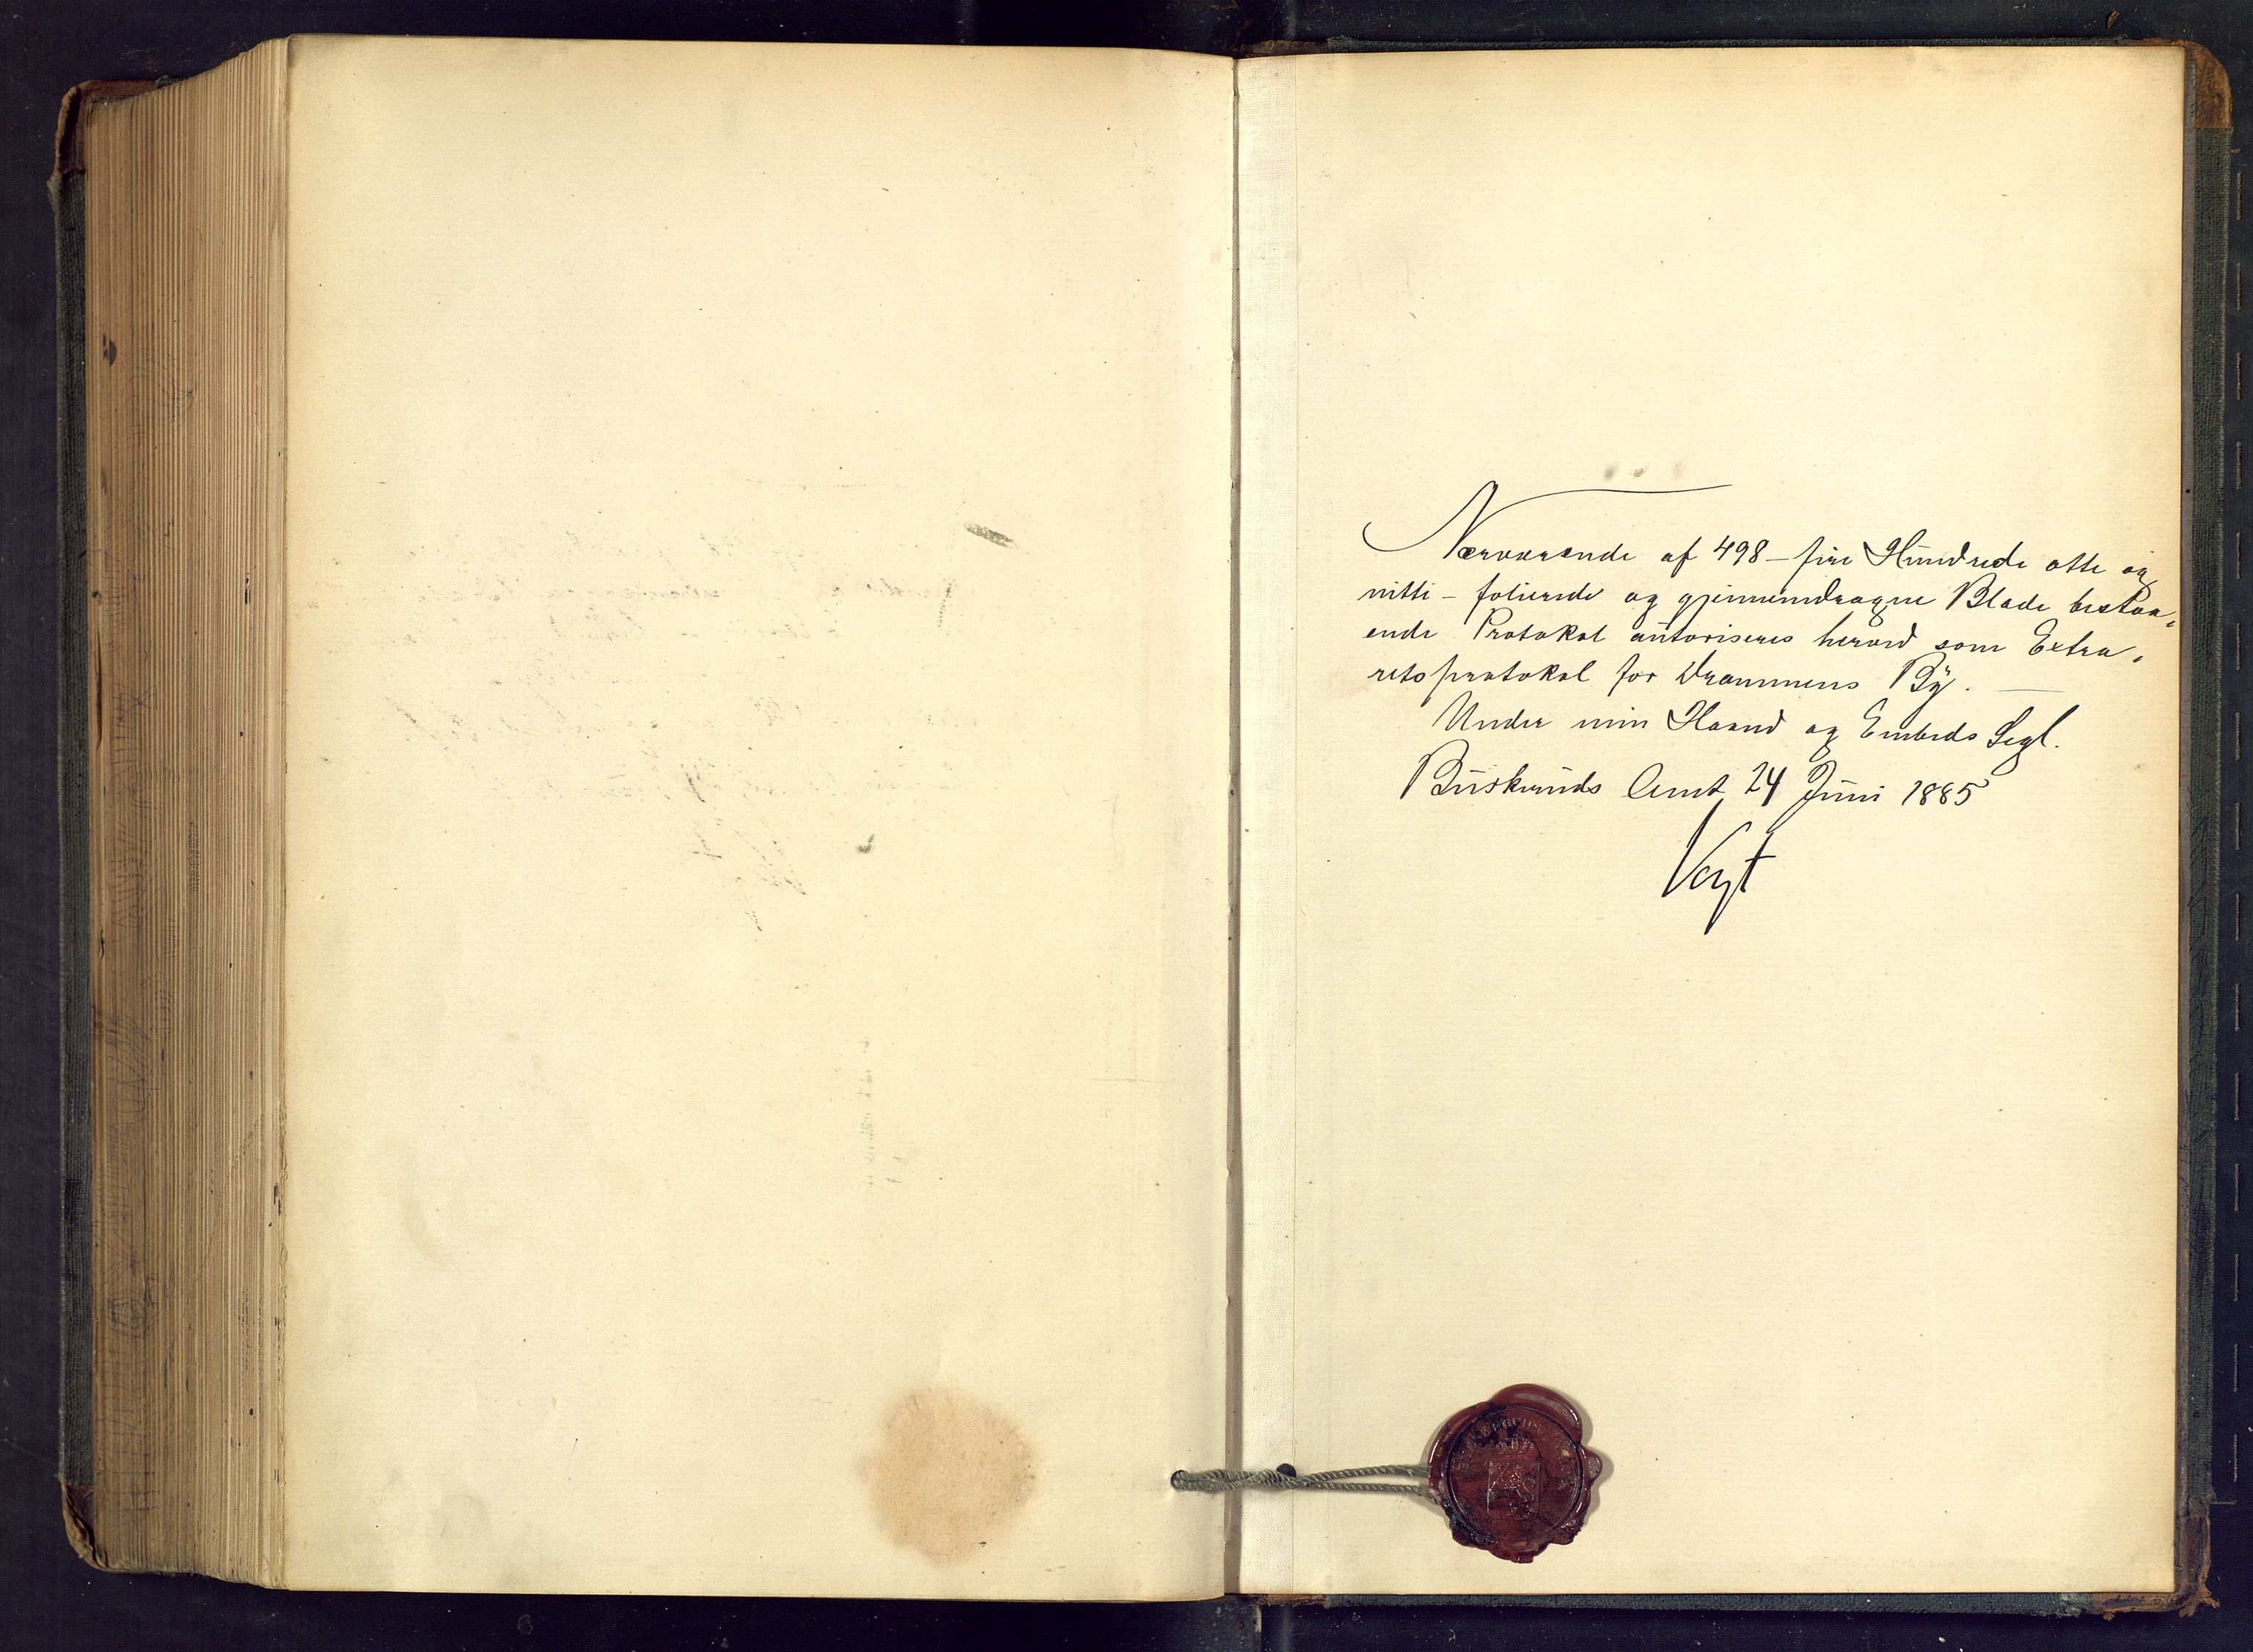 Nærværende af 498 – fire Hundrede otte og
nitti – folierede og gjennemdragne Blade bestaa„
ende Protokol autoriseres herved som Extra„
retsprotokol for Drammens By. —
Under min Haand og Embeds Segl.
Buskeruds Amt 24 Juni 1885
Vogt